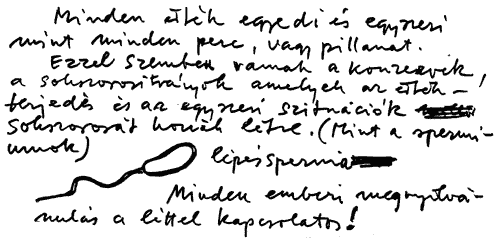 Minden étték egyedi és egyszeri
mint minden perc, vagy pillanat.
Ezzel szemben vannak a konzervek,
a sokszorosítványok amelyek az érték–
terjedés és az egyszeri szituációk
sokszorosát hozzák létre. (Mint a spermi-
umok)
lépésspermia
Minden emberi megnyilvá-
nulás a léttel kapcsolatos!